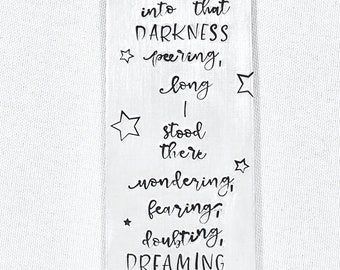 into that
DARKNESS
peering,
long
I
stood
there
wondering,
fearing,
doubting,
DREAMING